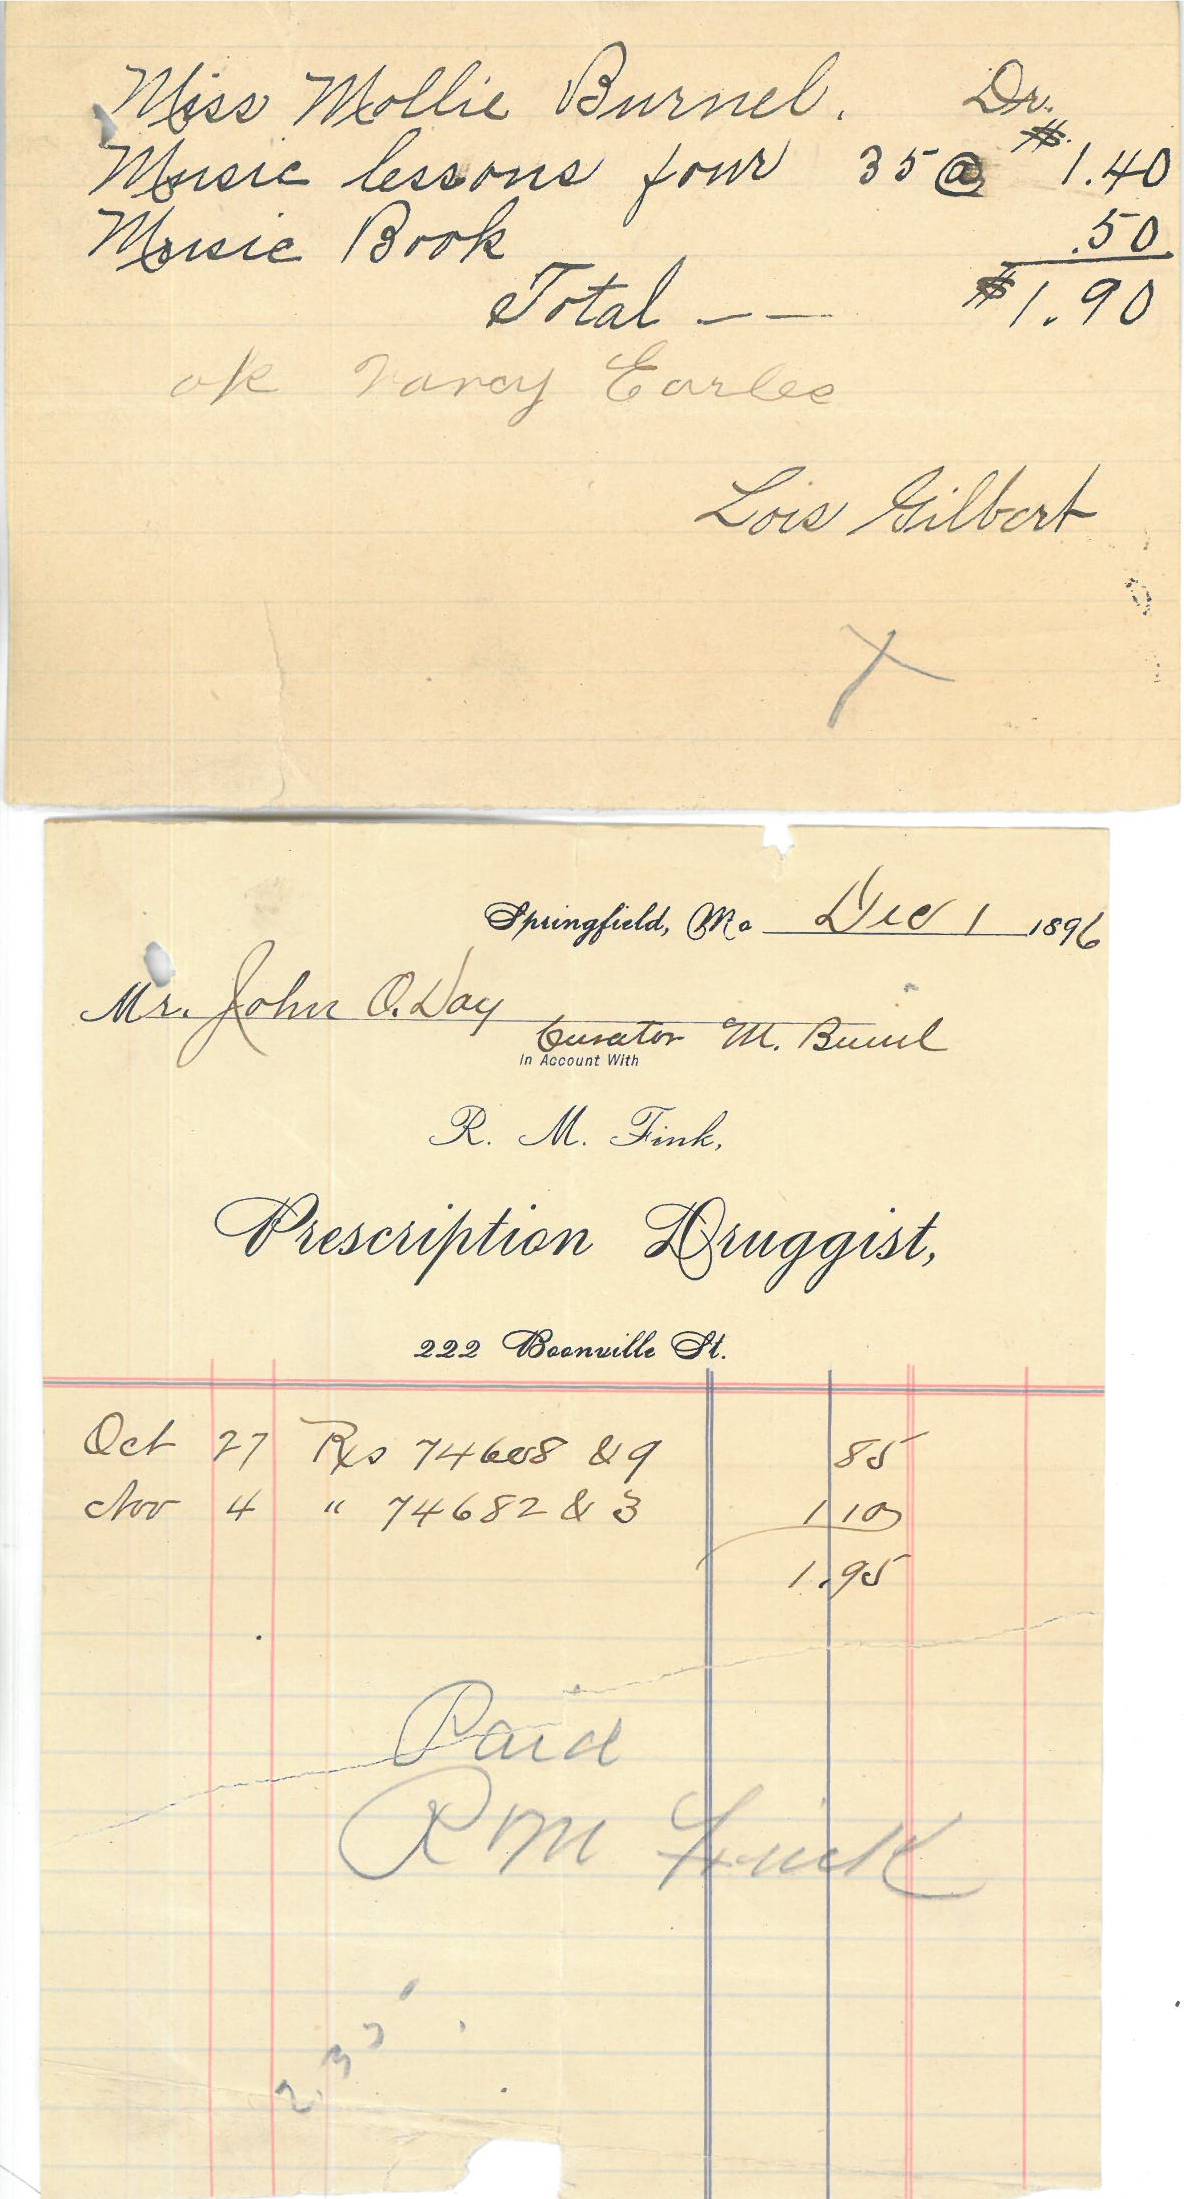 Miss Mollie Burnel. Dr.
Music lessons four 35 @ $1.40
Music Book .50
Total -- $1.90
ok Nancy Earles
Lois Gilbert
X
Springfield, Mo Dec 1 1896
Mr. John O. Day
Curator M. Burnel
In Account With
R. M. Fink,
Prescription Druggist,
222 Boonville St.
Oct 27 Rxs 74608 & 9 85
Nov 4 " 74682 & 3 1 10
1.95
Paid
R M Fink